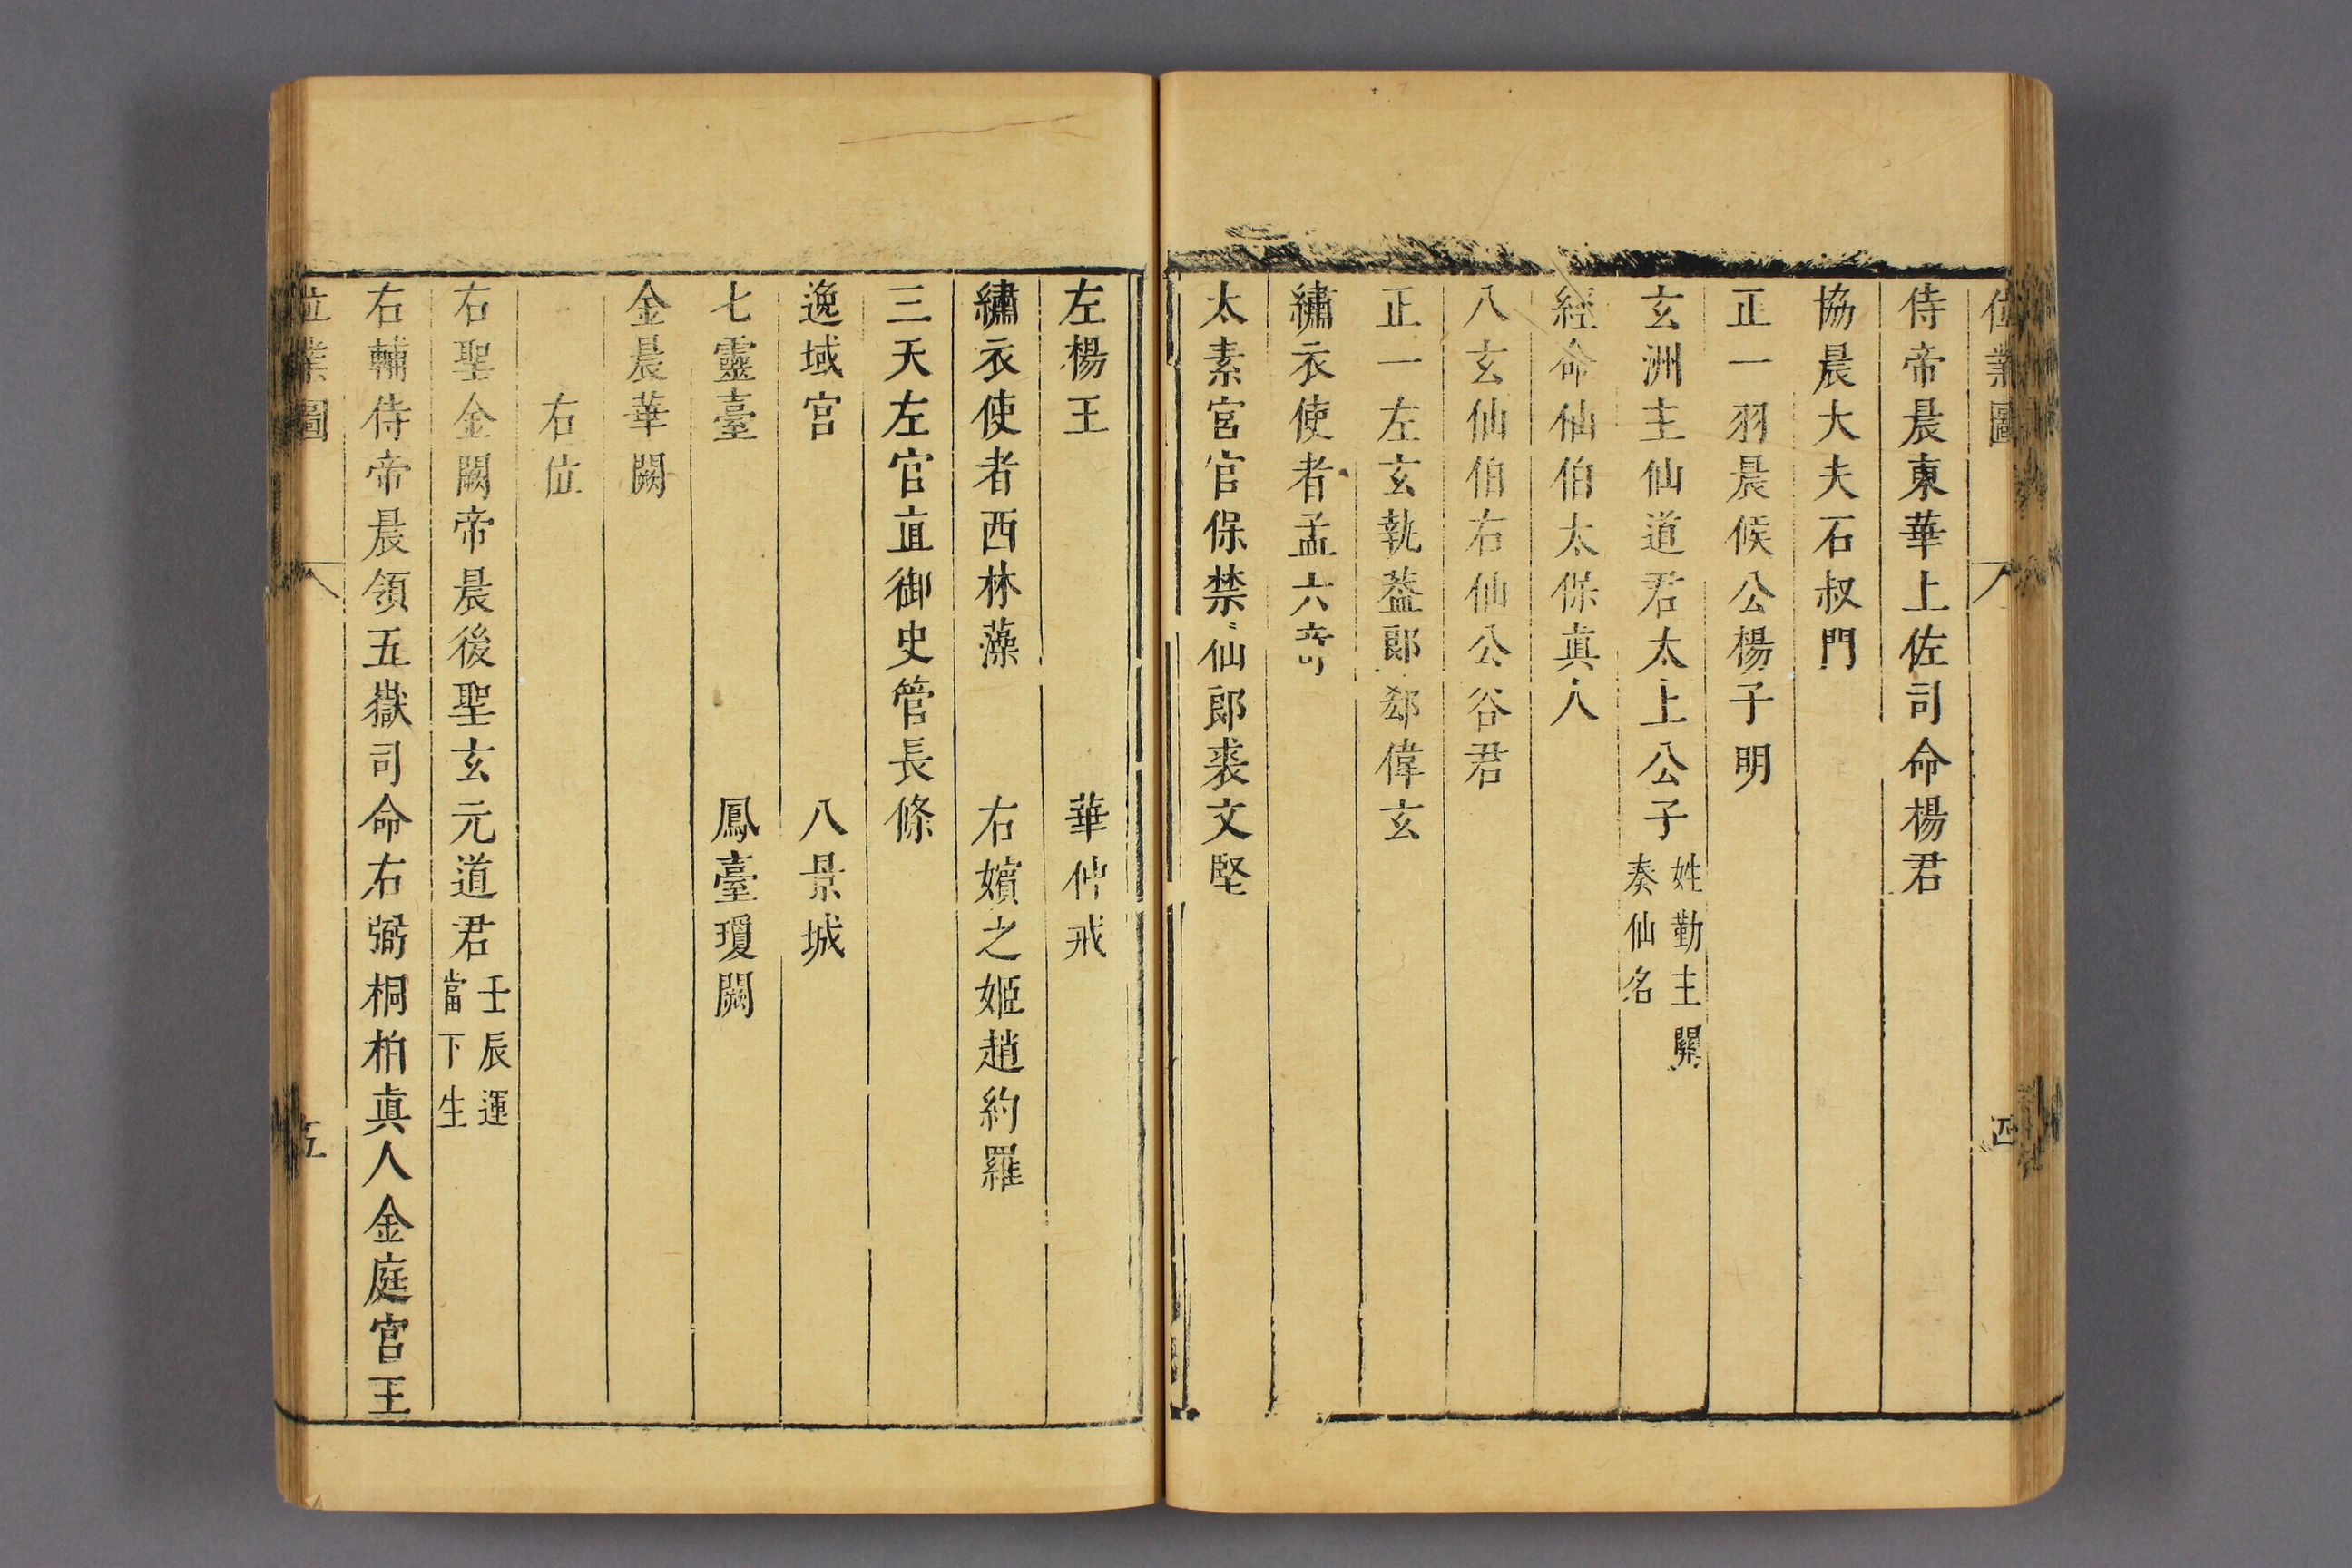 位業圖 四
侍帝晨東華上佐司命楊君
協晨大夫石叔門
正一羽晨候公楊子明
玄洲主仙道君太上公子姓勤主關奏仙名
經命仙伯太保真人
八玄仙伯右仙公谷君
正一左玄執蓋郎郄偉玄
繡衣使者孟六奇
太素宮官保禁仙郎裘文堅
左楊王 華仲戒
繡衣使者西林藻 右嬪之姬趙約羅
三天左官直御史管長條
逸域宮 八景城
七靈臺 鳳臺瓊闕
金晨華闕
右位
右聖金闕帝晨後聖玄元道君壬辰運當下生
右輔侍帝晨領五嶽司命右弼桐柏真人金庭宮王
位業圖 五